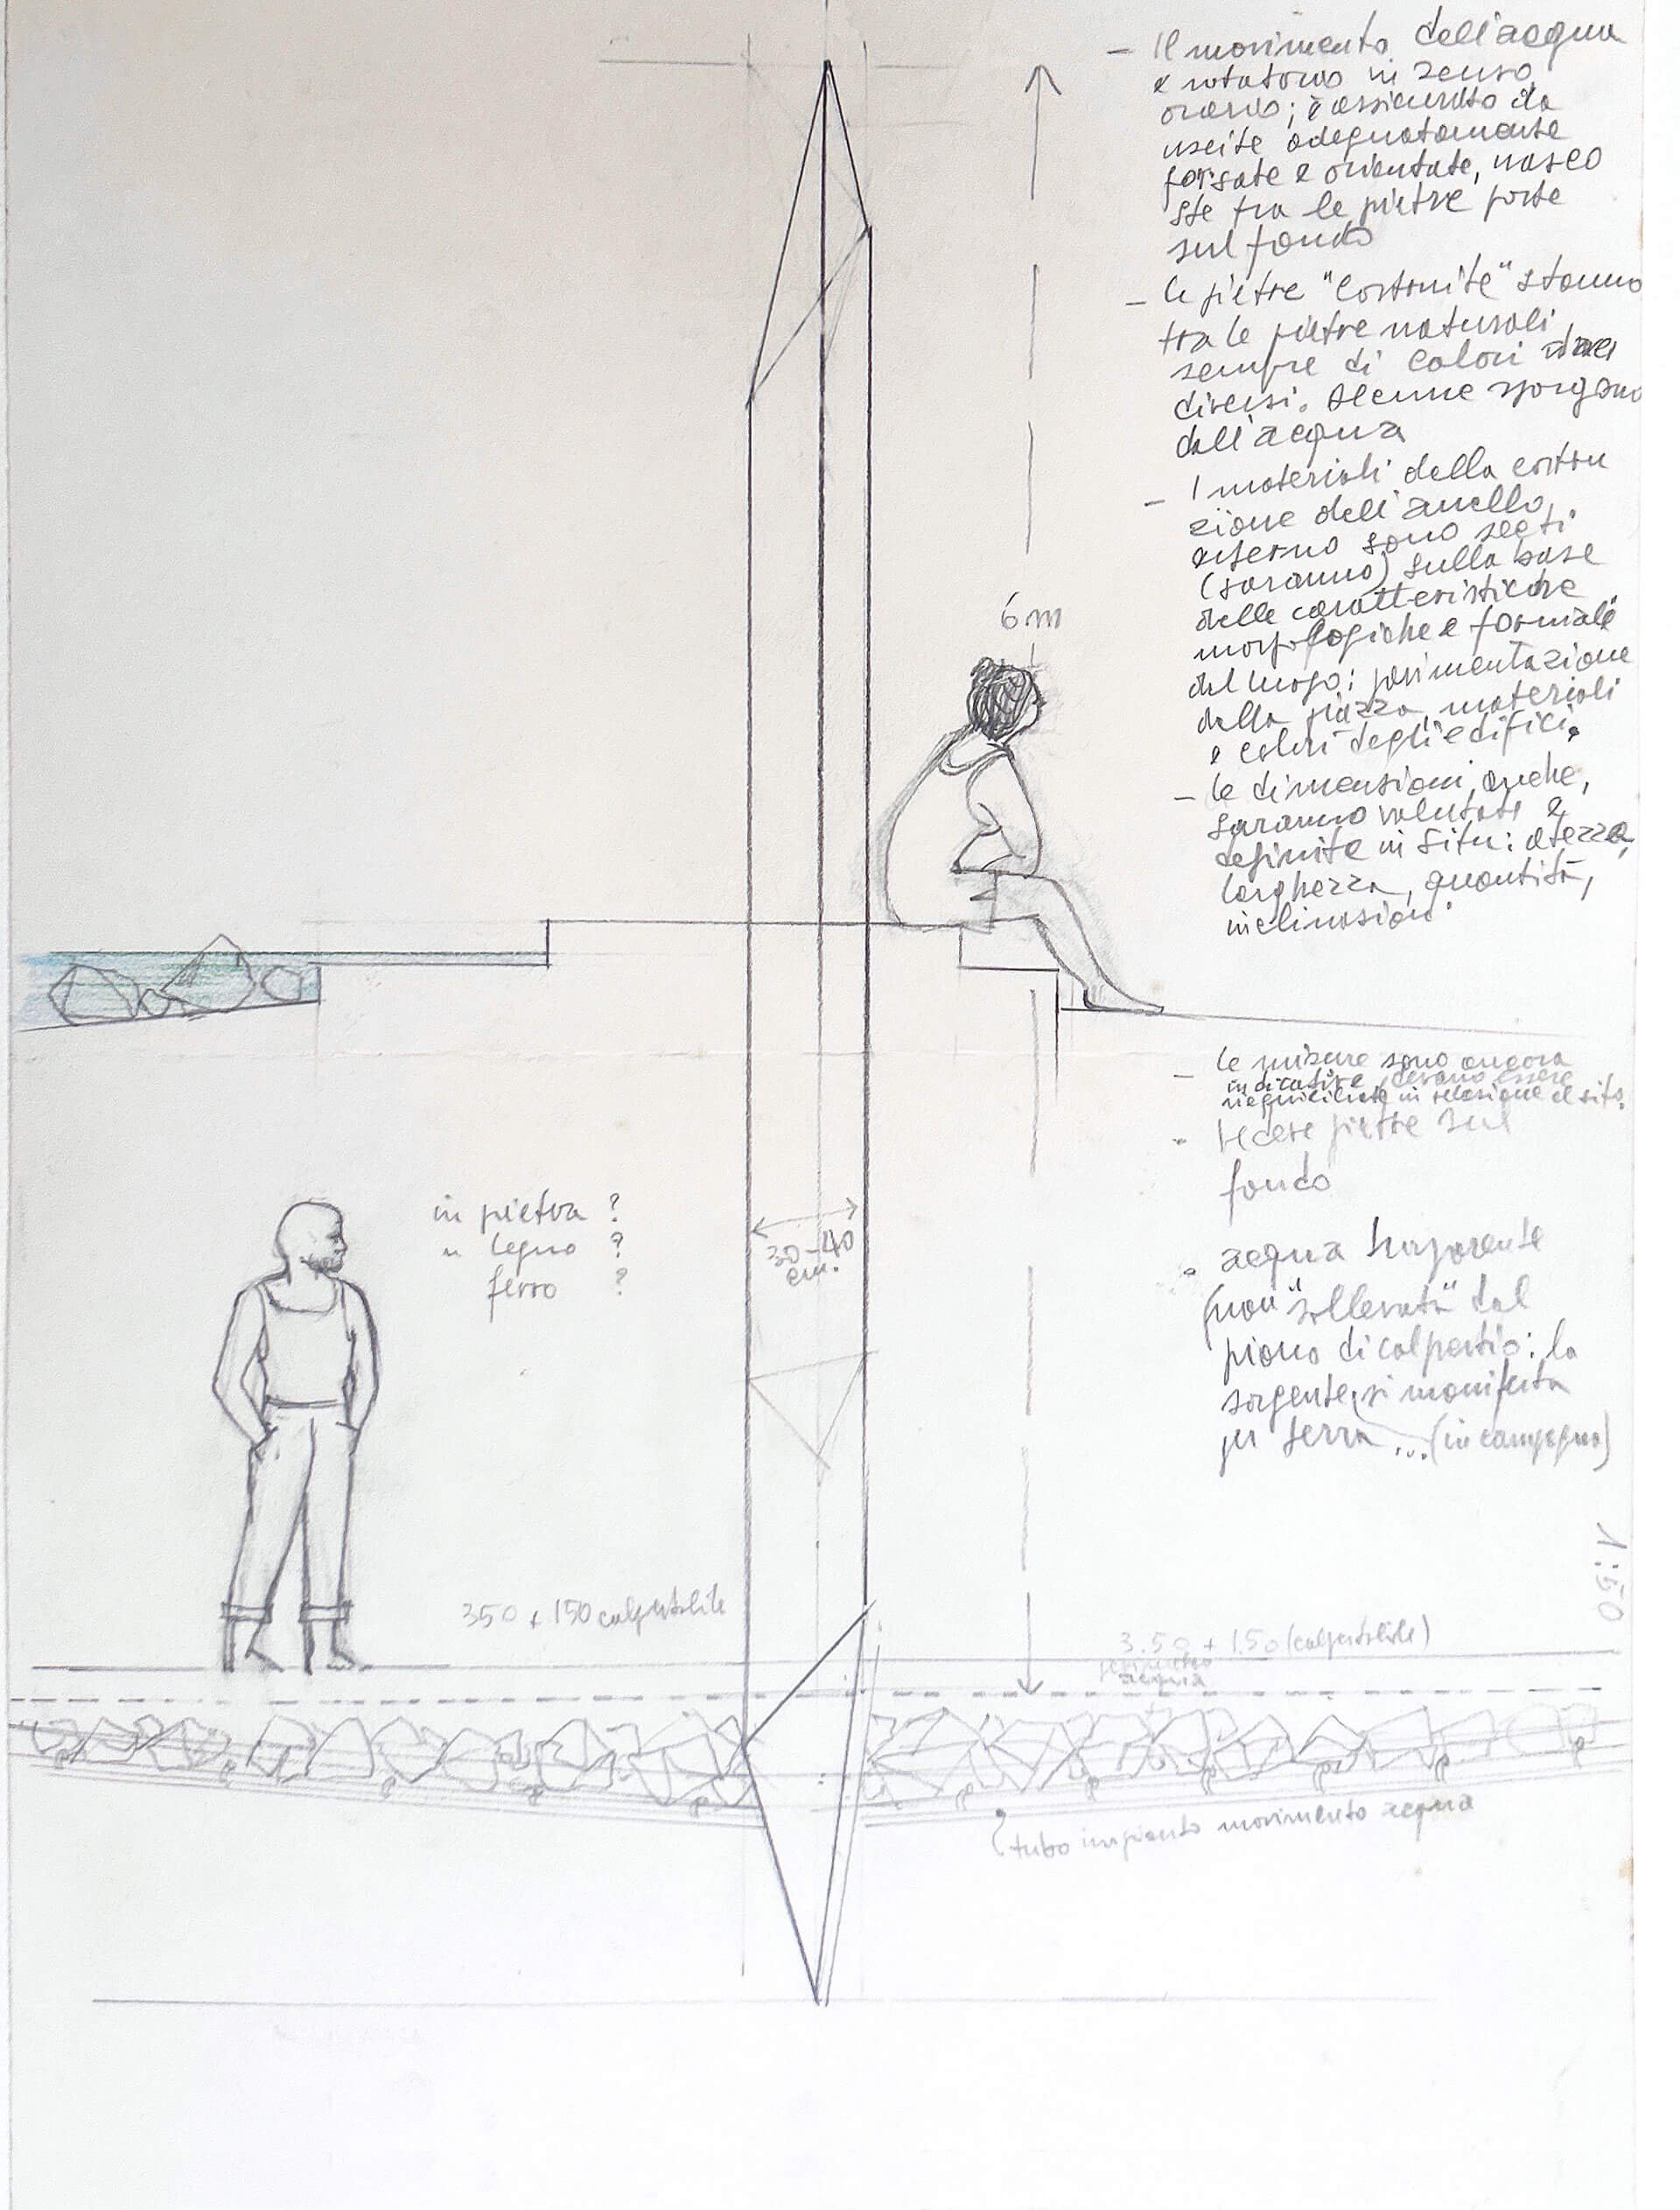 – Il movimento dell'acqua
è rotatorio in senso
orario; è assicurato da
uscite adeguatamente
forgate e orientate, nasco
ste tra le pietre poste
sul fondo
– le pietre "costruite" stanno
tra le pietre naturali
sempre di colori
diversi. Alcune sporgono
dall'acqua
– I materiali della costru
zione dell'anello
esterno sono scelti
(saranno) sulla base
delle caratteristiche
morfologiche e formali
del luogo: pavimentazione
della piazza materiali
e colori degli edifici.
– le dimensioni, anche,
saranno valutate e
definite in situ: altezza,
larghezza, quantità,
inclinazioni.
6 m
– le misure sono ancora
indicative, devono essere
riequilibrate in relazione al sito.
- pietre sul
fondo
in pietra ?
" legno ?
ferro ?
30-40
cm.
- acqua
(non "sollevata" dal
piano di calpestio: la
sorgente si manifesta
per terra ... (in campagna)
1:50
350 + 150 calpestabile
3.50 + 1.50 (calpestabile)
perimetro
acqua
tubo impianto movimento acqua